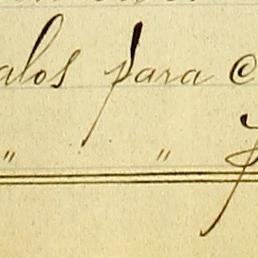 alos para c
" "